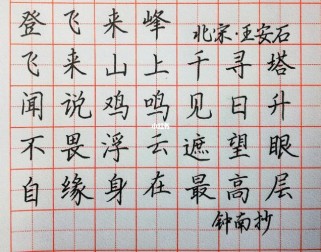 登飞来峰
北宋·王安石
飞来山上千寻塔
闻说鸡鸣见日升
不畏浮云遮望眼
自缘身在最高层
钟南抄